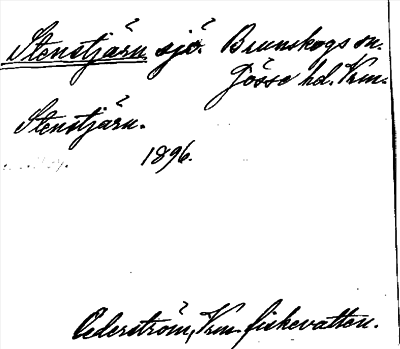 Stenstjärn. sjö. Brunskogs sn.
Jösse hd. Vrm.
Stenstjärn.
1896.
Cederström, Vrm. fiskevatten.